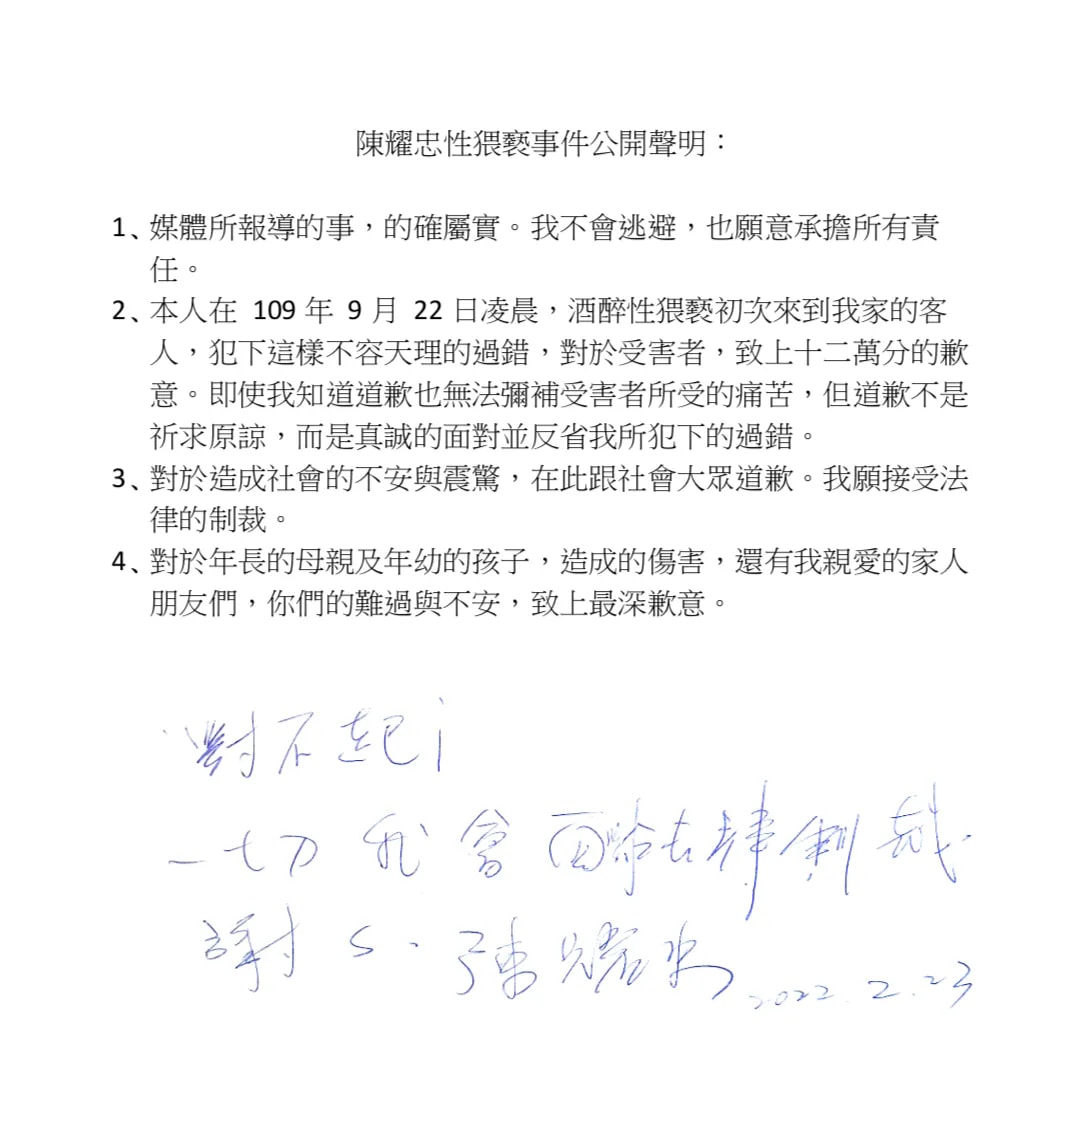 陳耀忠性猥褻事件公開聲明：
1、媒體所報導的事，的確屬實。我不會逃避，也願意承擔所有責
任。
2、本人在 109 年 9 月 22 日凌晨，酒醉性猥褻初次來到我家的客
人，犯下這樣不容天理的過錯，對於受害者，致上十二萬分的歉
意。即使我知道道歉也無法彌補受害者所受的痛苦，但道歉不是
祈求原諒，而是真誠的面對並反省我所犯下的過錯。
3、對於造成社會的不安與震驚，在此跟社會大眾道歉。我願接受法
律的制裁。
4、對於年長的母親及年幼的孩子，造成的傷害，還有我親愛的家人
朋友們，你們的難過與不安，致上最深歉意。
對不起！
一切我會面臨法律制裁.
陳耀忠 2022.2.23